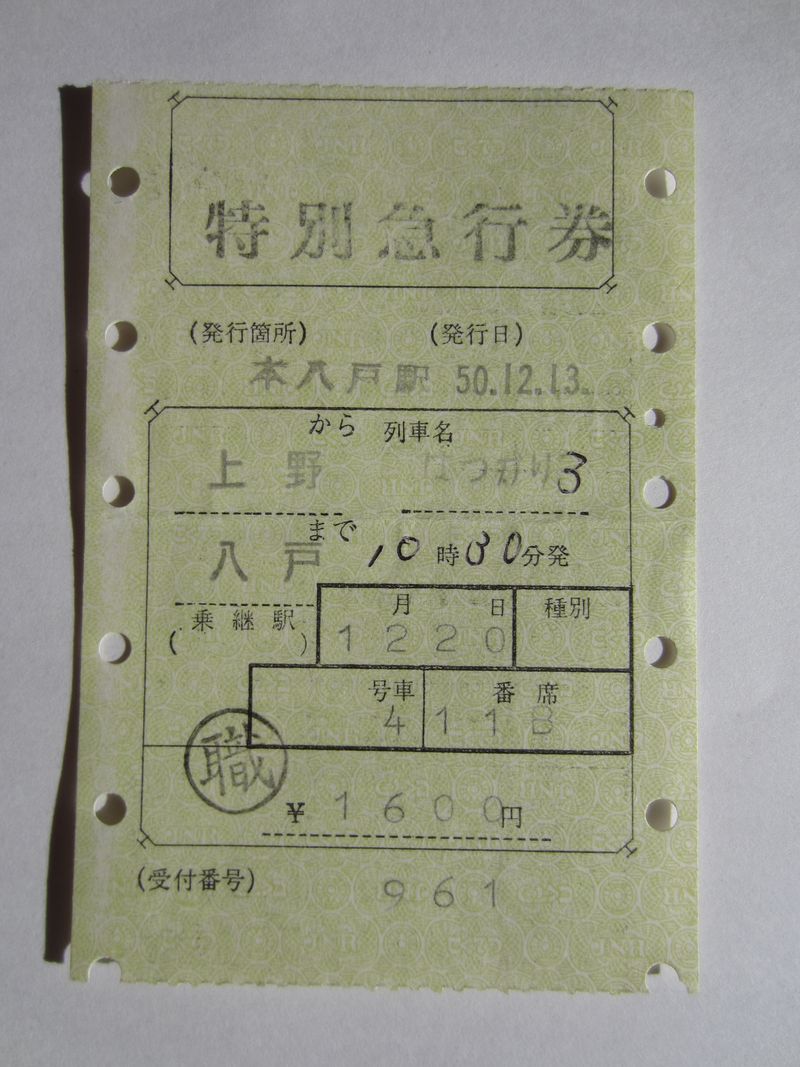 特別急行券
(発行箇所) (発行日)
本八戸駅 50.12.13.
から 列車名
上野 はつかり3
まで
八戸 10時30分発
月 日 種別
(乗継駅) 1220
号車 番席
4 11B
職
¥1600円
(受付番号)
961